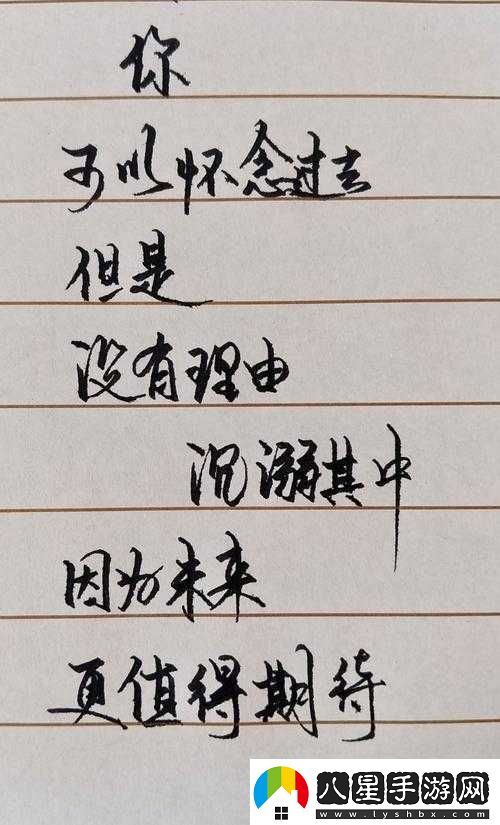 你
可以怀念过去
但是
没有理由
沉溺其中
因为未来
更值得期待
八星手游网
www.lyshbx.com